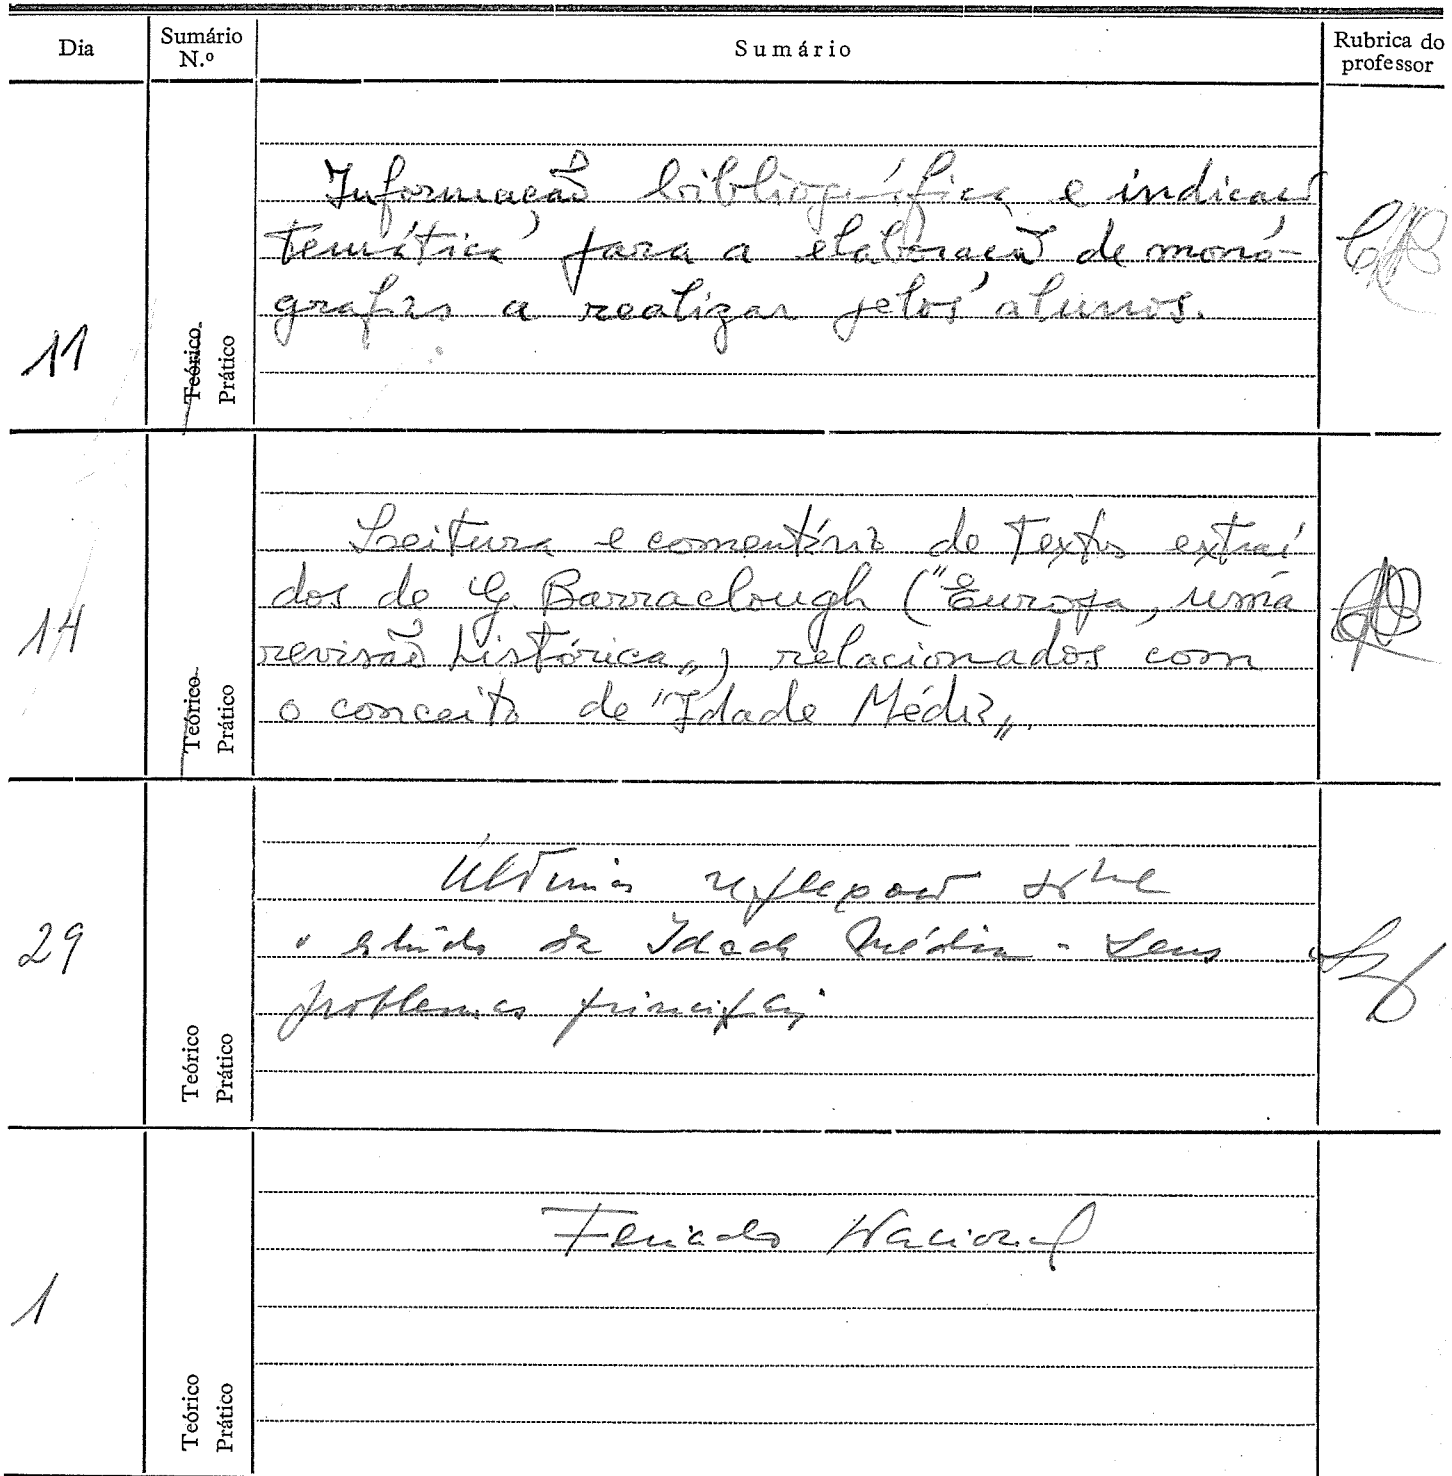 Dia
Sumário
N.º
Sumário
Rubrica do
professor
11
Teórico
Prático
Informação bibliográfica e indicação
temática para a elaboração de mono-
grafias a realizar pelos alunos.
14
Teórico
Prático
Leitura e comentário de textos extraí
dos de G. Barraclough ("Europa, uma
revisão histórica„) relacionados com
o conceito de "Idade Média„.
29
Teórico
Prático
Últimas reflexões sobre
o estudo da Idade Média - Seus
problemas principais
1
Teórico
Prático
Feriado Nacional